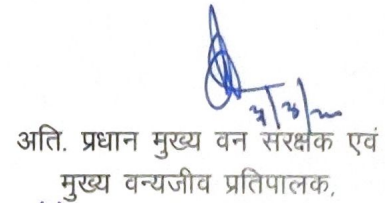 अति. प्रधान मुख्य वन संरक्षक एवं
मुख्य वन्यजीव प्रतिपालक,